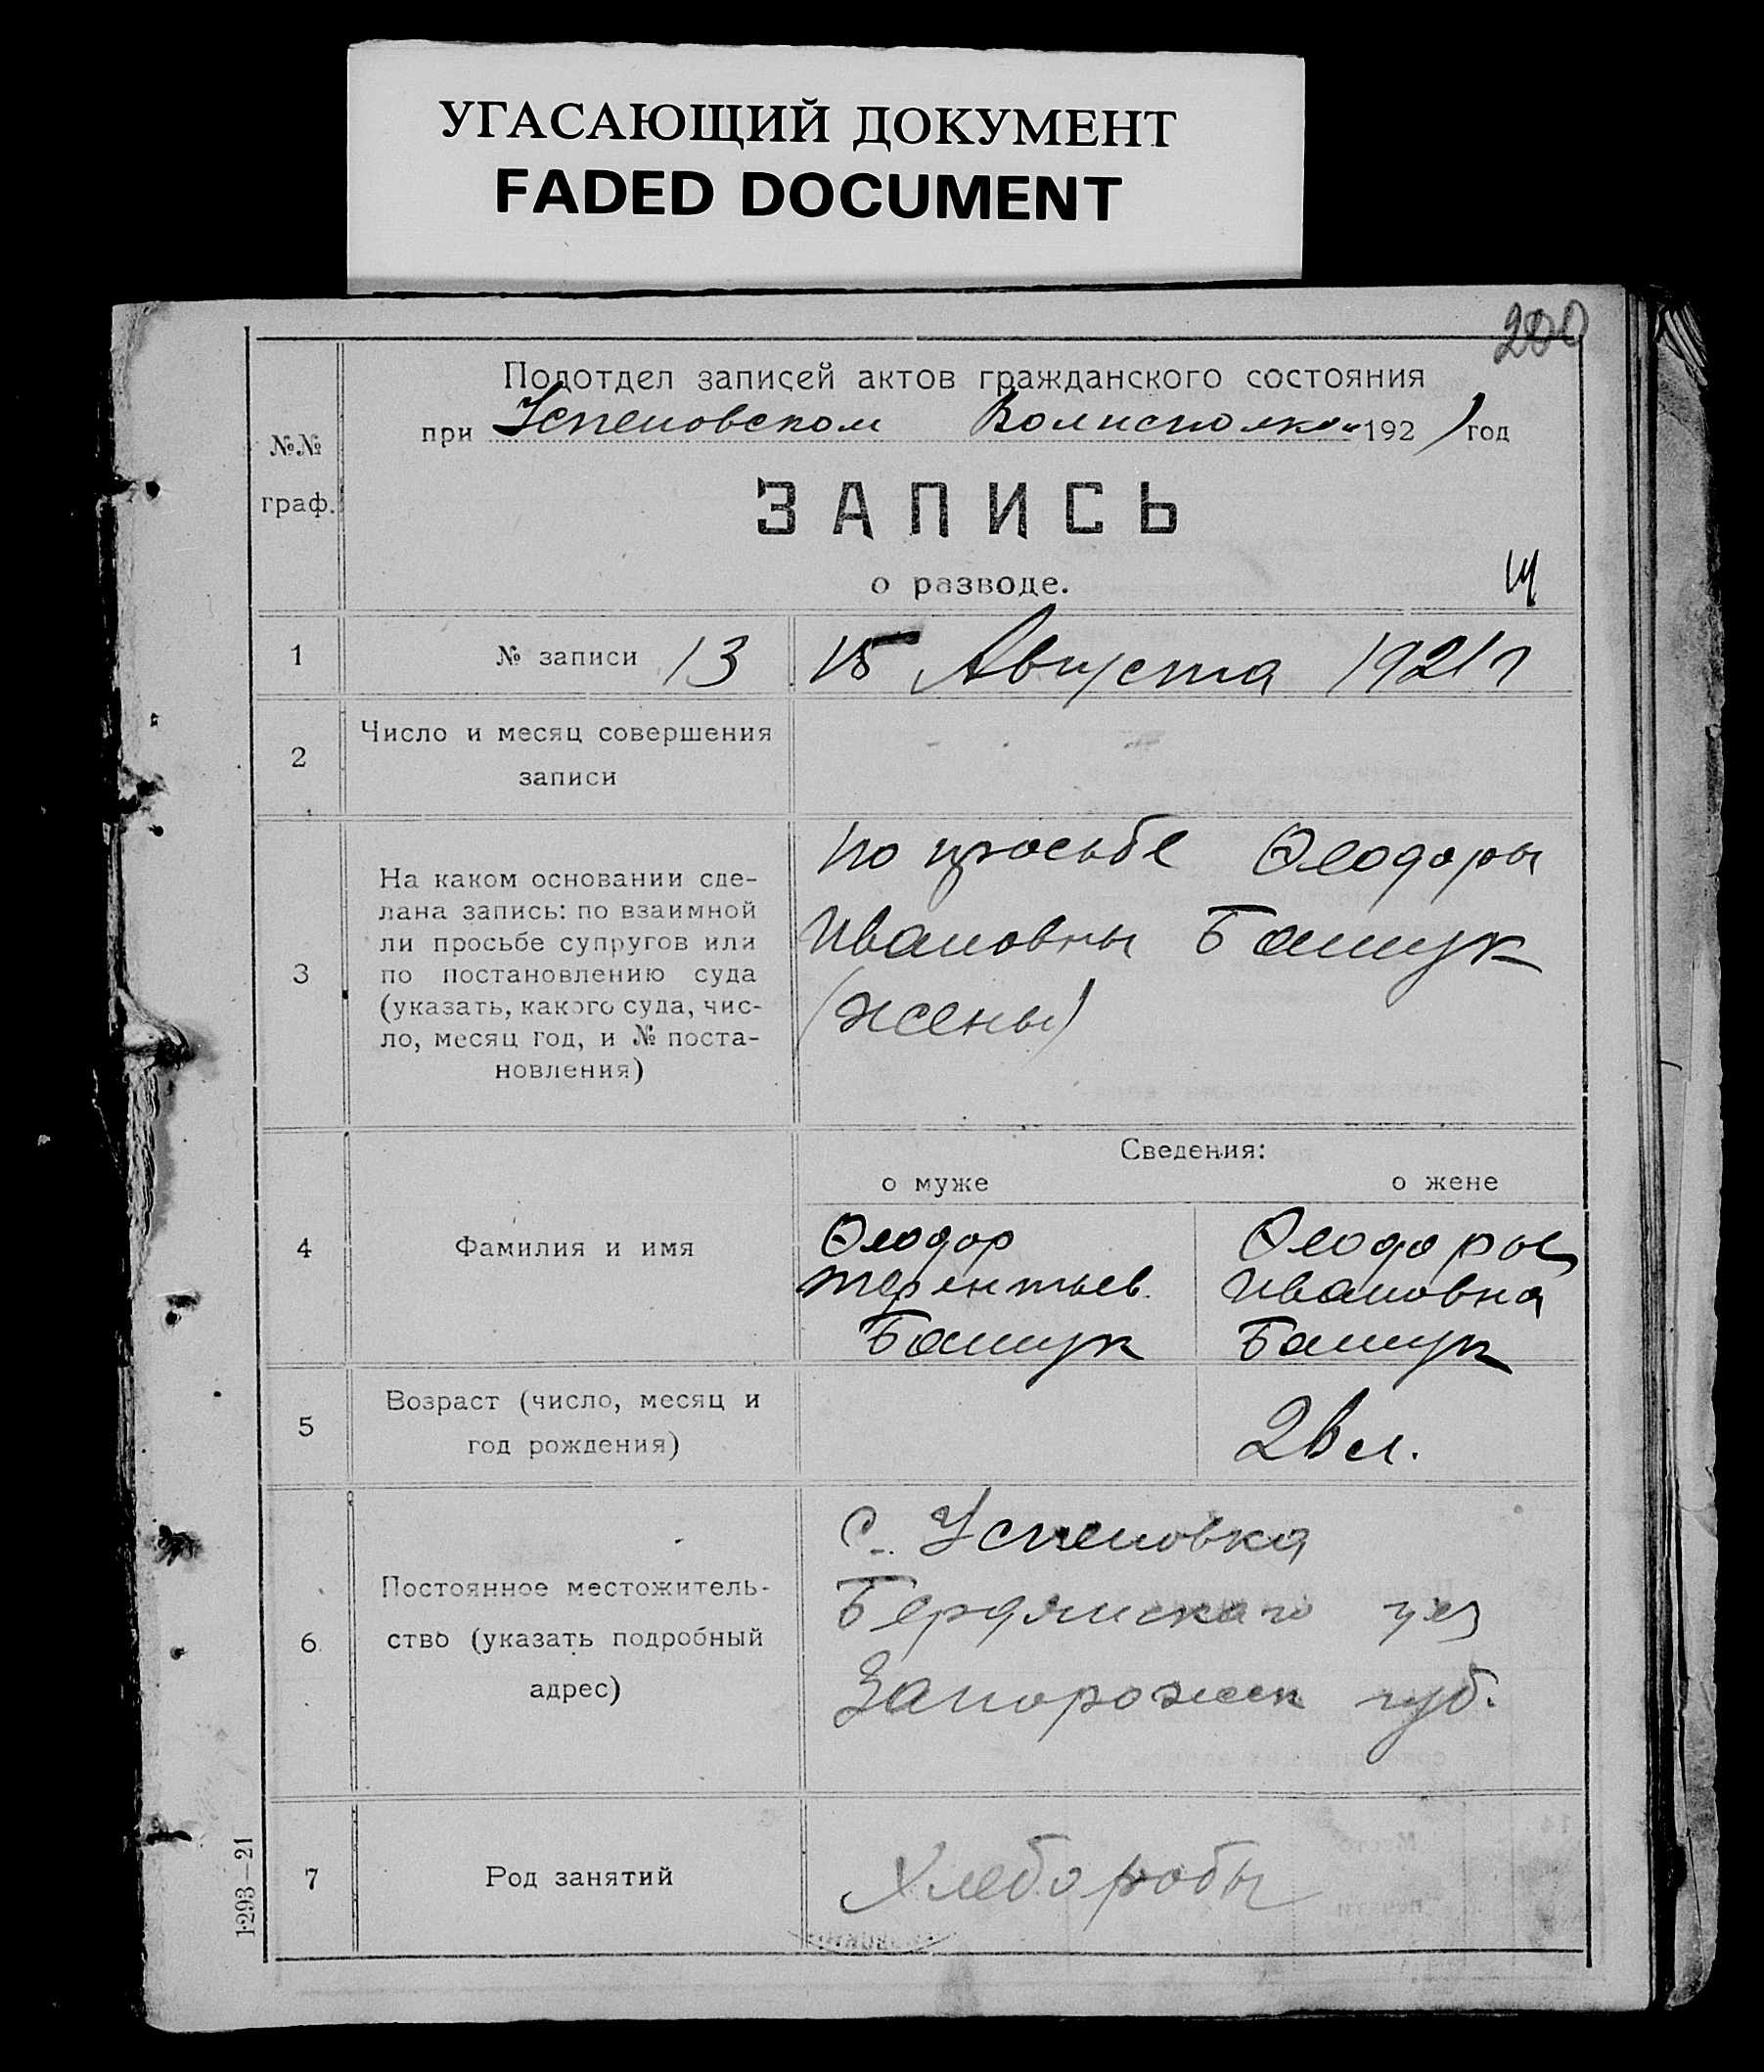 УГАСАЮЩИЙ ДОКУМЕНТ
FADED DOCUMENT
200
Подотдел записей актов гражданского состояния
при Успеновском Волисполком 1921 год
№№
граф.
ЗАПИСЬ
о разводе.
1 № записи 13 15 Августа 1921 г
2 Число и месяц совершения
записи
3 На каком основании сде-
лана запись: по взаимной
ли просьбе супругов или
по постановлению суда
(указать, какого суда, чис-
ло, месяц год, и № поста-
новления)
по просьбе Ѳеодоры
Ивановны Башук
(жены)
Сведения:
о муже о жене
4 Фамилия и имя
Ѳеодор
Терентьев.
Башук
Ѳеодоры
Ивановна
Башук
5 Возраст (число, месяц и
год рождения)
л.
6 Постоянное местожитель-
ство (указать подробный
адрес)
с. Успеновка
Бердянскаго уез
Запорожск губ.
7 Род занятий Хлеборобы
1293—21